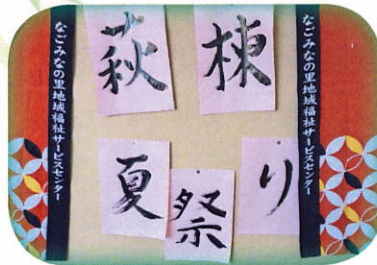 なごみなの里地域福祉サービスセンター
萩棟
夏祭り
なごみなの里地域福祉サービスセンター